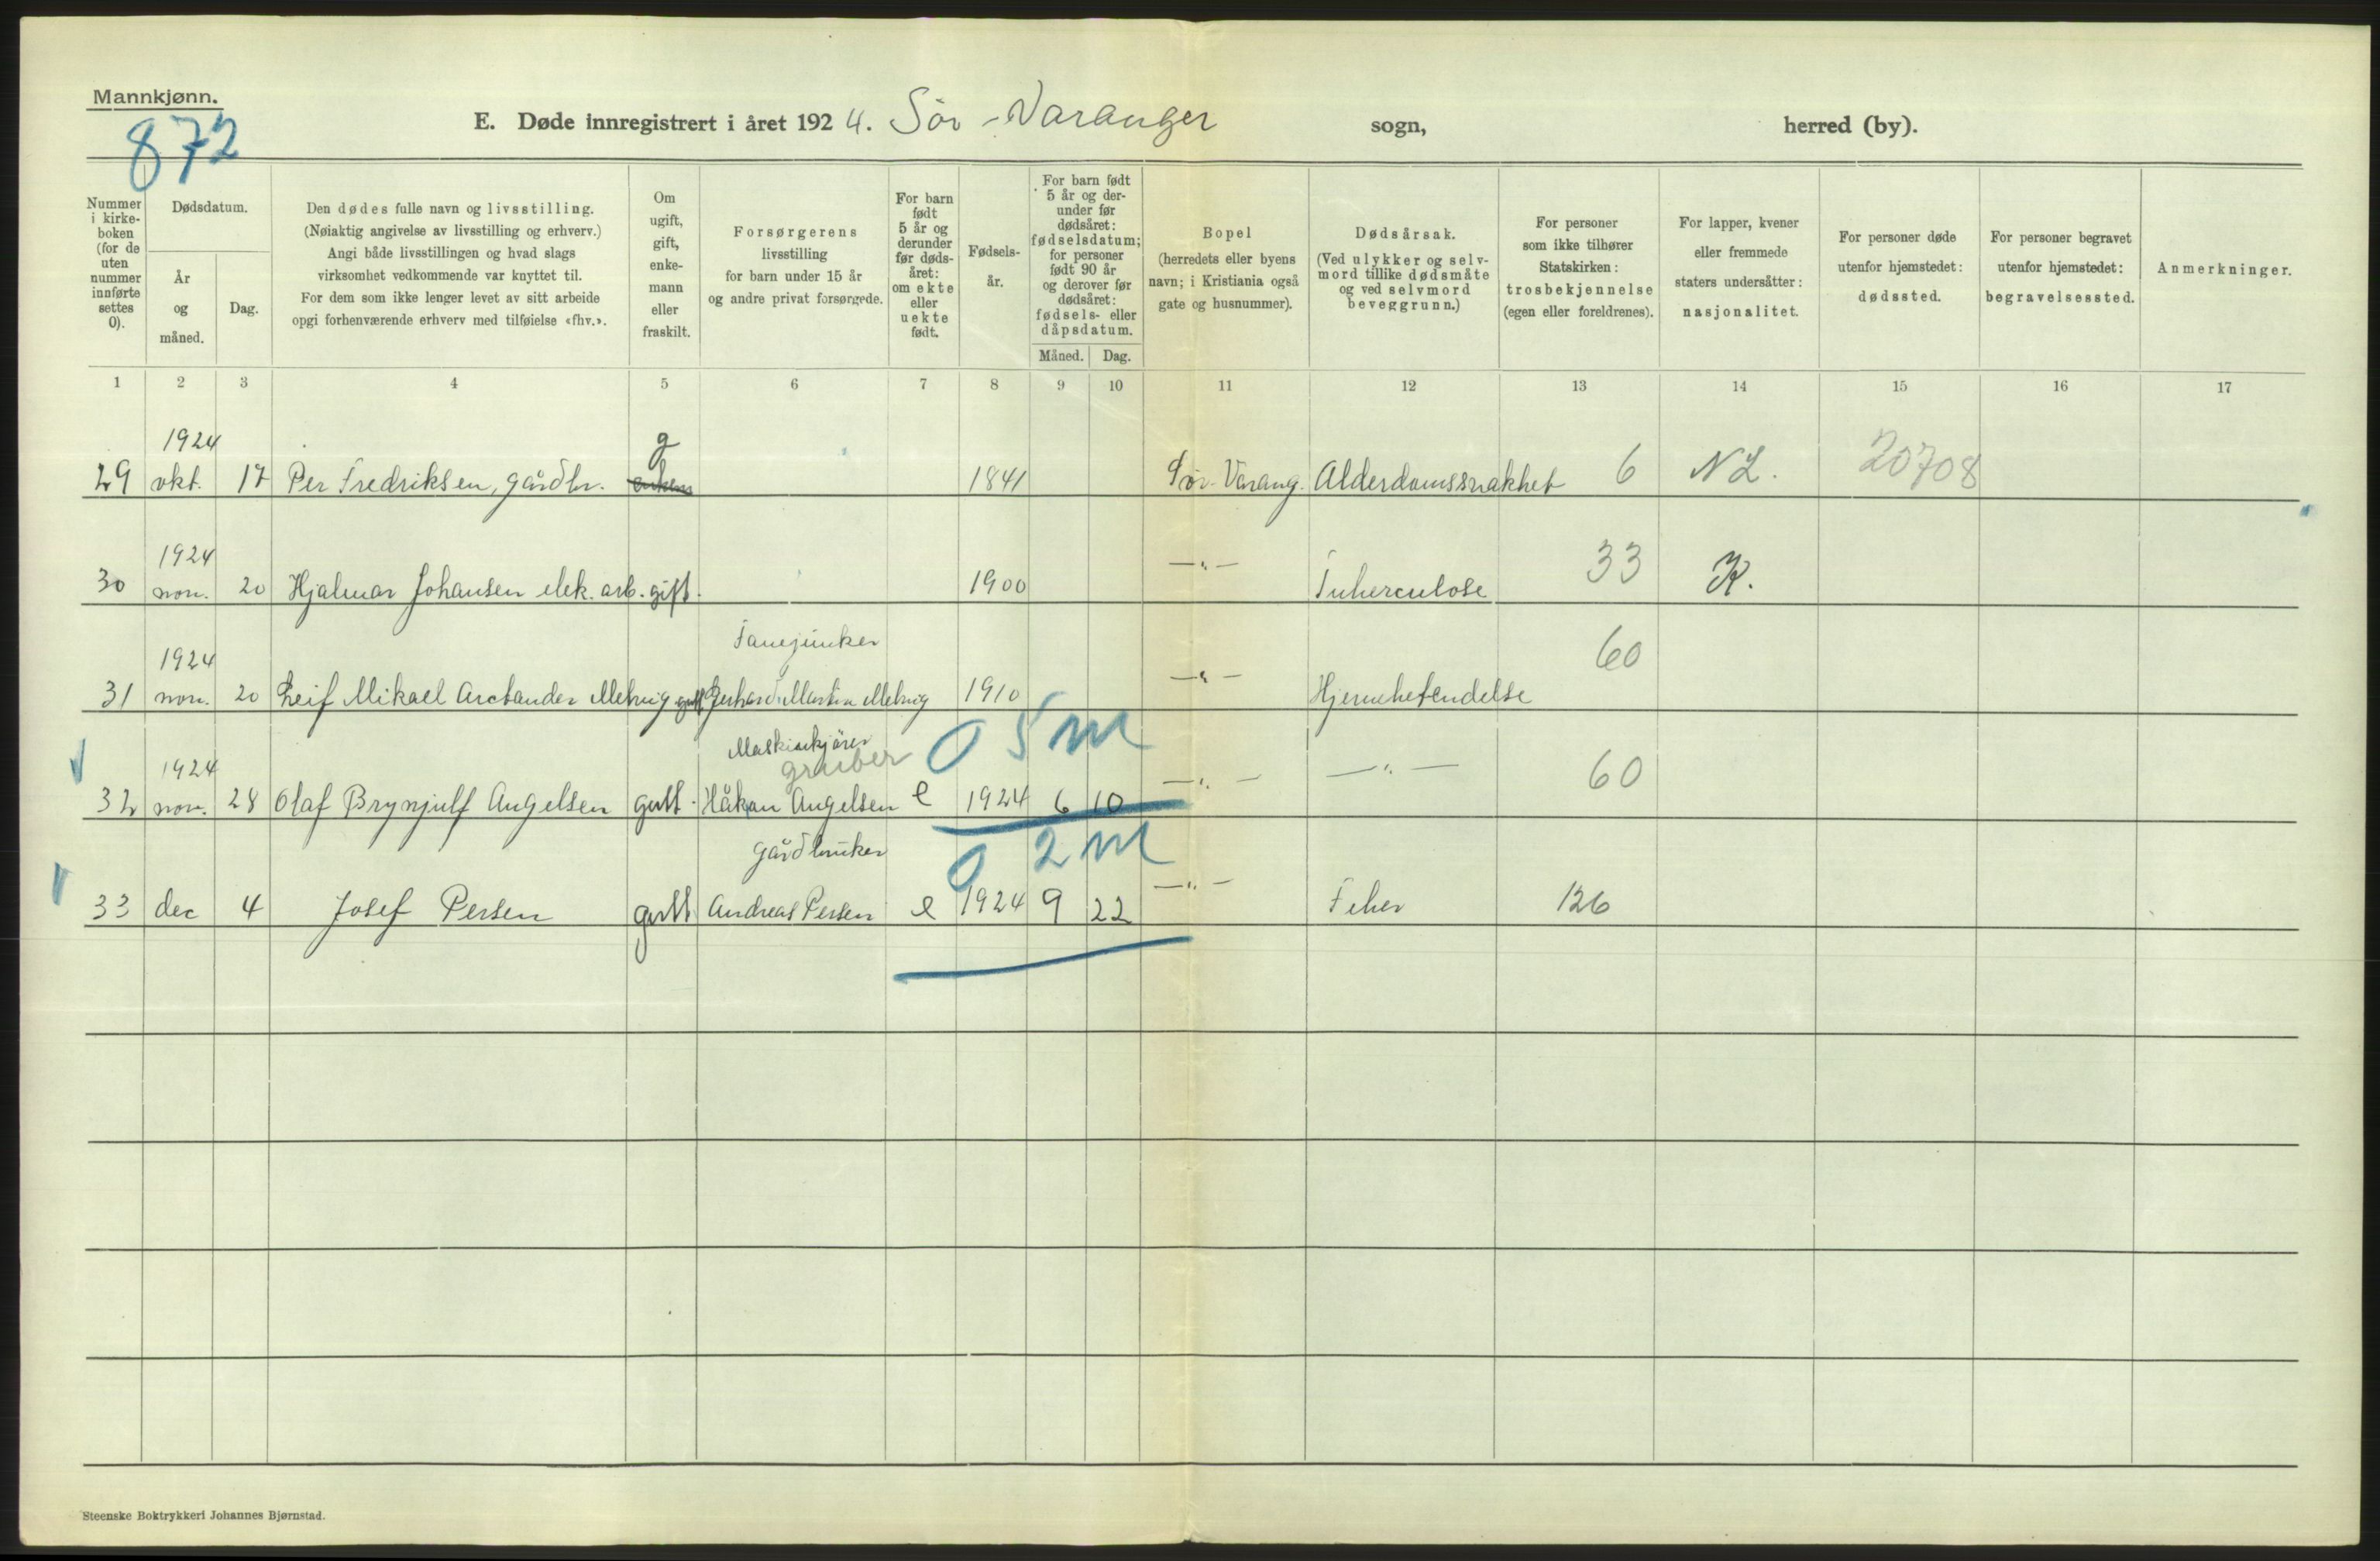 Mannkjønn.
872
E. Døde innregistrert i året 1924. Sör-Varanger sogn, herred (by).
Nummer i kirkeboken (for de uten nummer innførte settes 0).
Dødsdatum.
År og måned.
Dag.
Den dødes fulle navn og livsstilling.
(Nøiaktig angivelse av livsstilling og erhverv.)
Angi både livsstillingen og hvad slags
virksomhet vedkommende var knyttet til.
For dem som ikke lenger levet av sitt arbeide
opgi forhenværende erhverv med tilføielse «fhv.».
Om ugift, gift, enkemann eller fraskilt.
Forsørgerens
livsstilling
for barn under 15 år
og andre privat forsørgede.
For barn født 5 år og derunder før dødsåret: om ekte eller uekte født.
Fødselsår.
For barn født 5 år og derunder før dødsåret: fødselsdatum; for personer født 90 år og derover før dødsåret: fødsels- eller dåpsdatum.
Måned. Dag.
Bopel
(herredets eller byens
navn; i Kristiania også
gate og husnummer).
Dødsårsak.
(Ved ulykker og selvmord tillike dødsmåte
og ved selvmord
beveggrunn.)
For personer
som ikke tilhører
Statskirken:
trosbekjennelse
(egen eller foreldrenes).
For lapper, kvener
eller fremmede
staters undersåtter:
nasjonalitet.
For personer døde
utenfor hjemstedet:
dødssted.
For personer begravet
utenfor hjemstedet:
begravelsessted.
Anmerkninger.
1 2 3 4 5 6 7 8 9 10 11 12 13 14 15 16 17
1924 g
29 okt. 17 Per Fredriksen, gårdbr. 1841 Sör-Varang. Alderdomssvakhet 6 NL. 20708
1924
30 nov. 20 Hjalmar Johansen elek. arb. gift. 1900 —"— Tuberculose 33 K.
1924
31 nov. 20 Leif Mikael Arctander Melvig gutt Gerhard Martin Melvig 1910 —"— Hjernebetendelse 60
Maskinkjörer
gruber 0 5 m
1924
32 nov. 28 Olaf Brynjulf Angelsen gutt. Håkan Angelsen e 1924 6 10 —"— —"— 60
gårdbruker 0 2 m
33 dec 4 Josef Persen gutt Andreas Persen e 1924 9 22 —"— Feber 126
Steenske Boktrykkeri Johannes Bjørnstad.